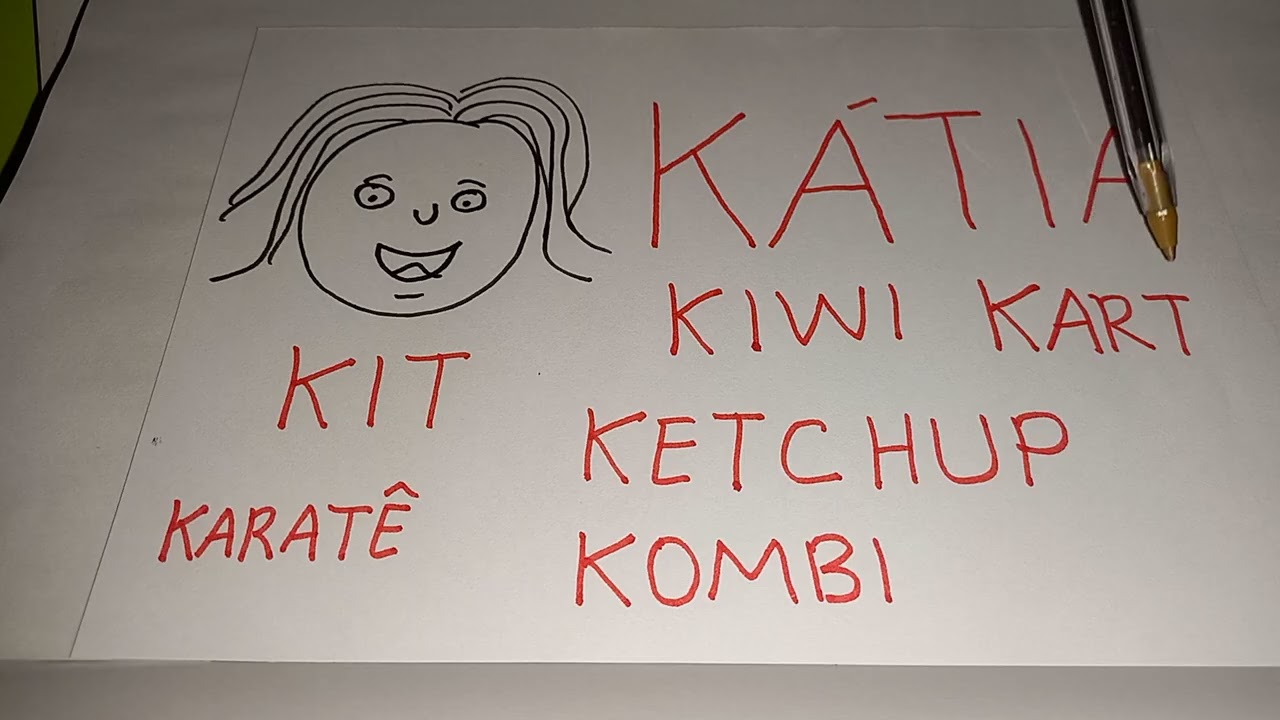 KÁTIA
KIWI KART
KIT
KETCHUP
KARATÊ
KOMBI